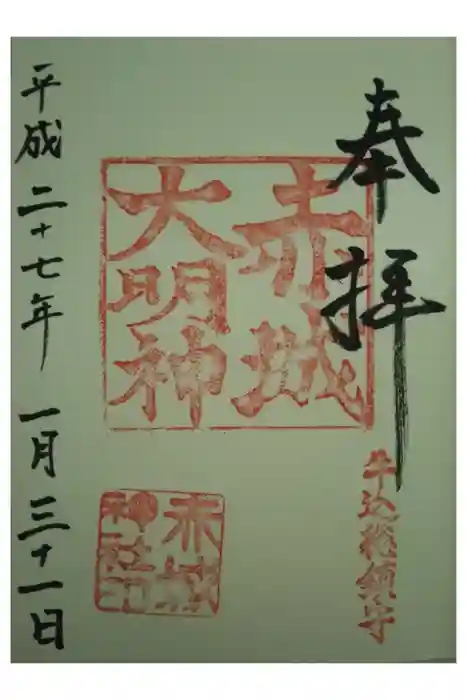 奉拝
牛込総鎮守
赤城
大明神
赤城
神社印
平成二十七年 一月三十一日